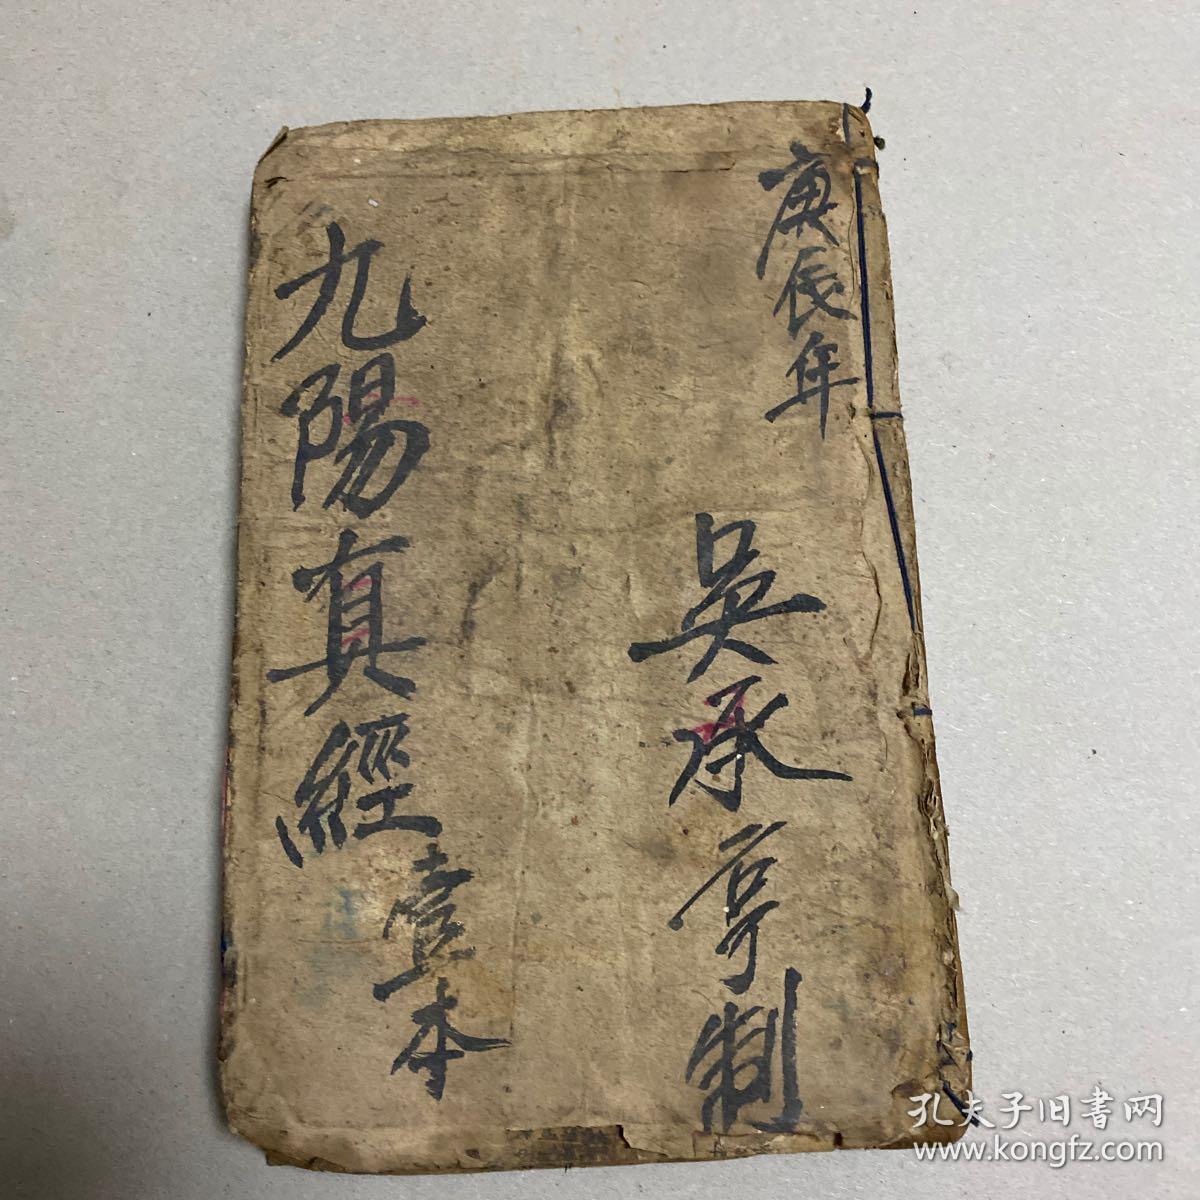 庚辰年
吳承亭制
九陽真經壹本
孔夫子旧書网
www.kongfz.com